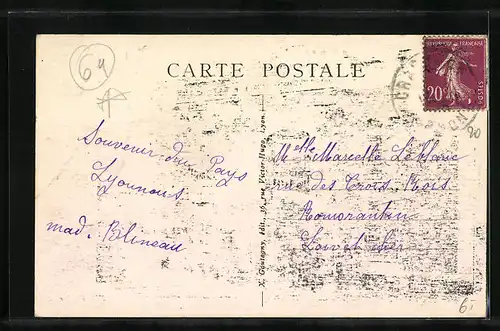 64
CARTE POSTALE
RÉPUBLIQUE FRANÇAISE
20c.
POSTES
Souvenir du Pays
Lyonnais
mad. Blineau
X. Goutagny, édit., rue Victor-Hugo, Lyon.
Melle Marcelle Leblanc
rue des Trois Rois
Romorantin
Loir et Cher
20
6.